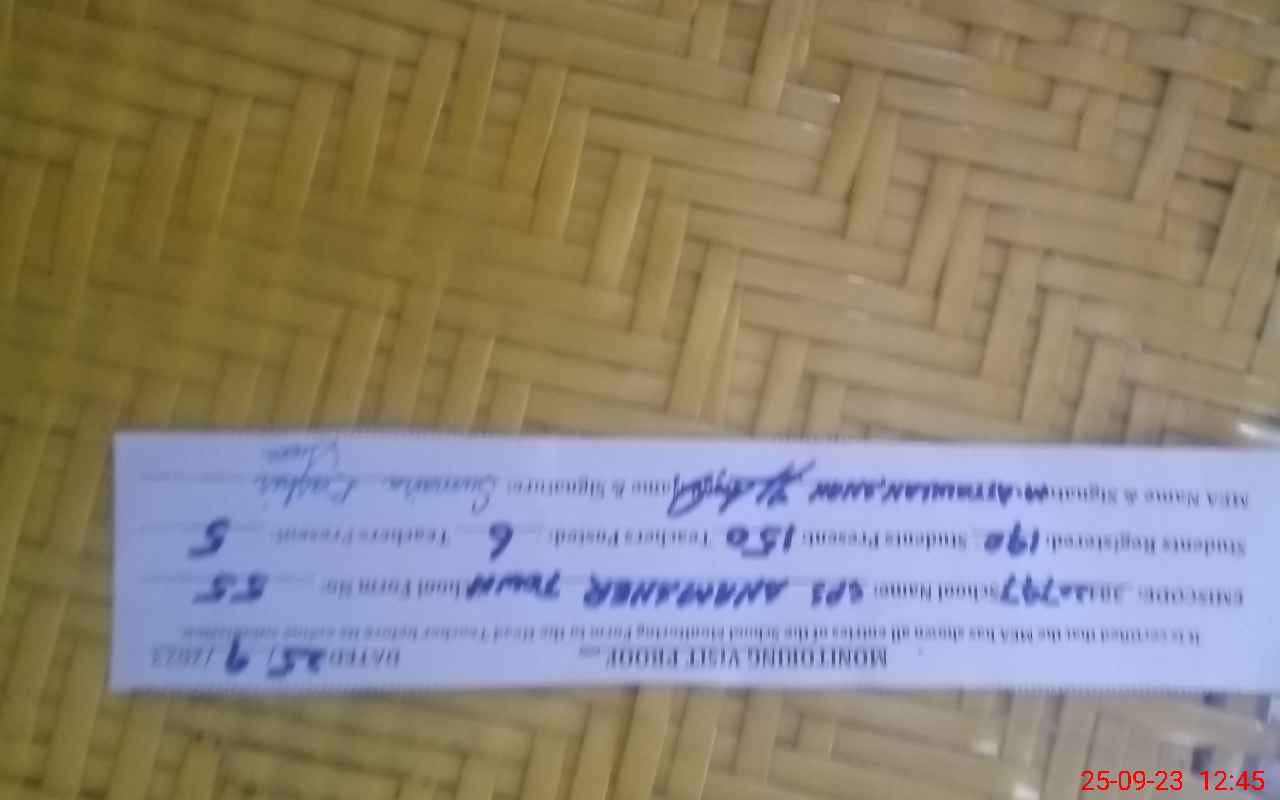 MONITORING VISIT PROOF DATED 25 / 9 / 2023
It is certified that the MEA has shown all entries of the School Monitoring Form to the Head Teacher before its online submission.
EMISCODE: School Name: GPS ANAMANER TOWN School Form No: 55
Students Registered: 190 Students Present: 150 Teachers Posted: 6 Teachers Present: 5
MEA Name & Signature: Name & Signature: Sumaira
25-09-23 12:45